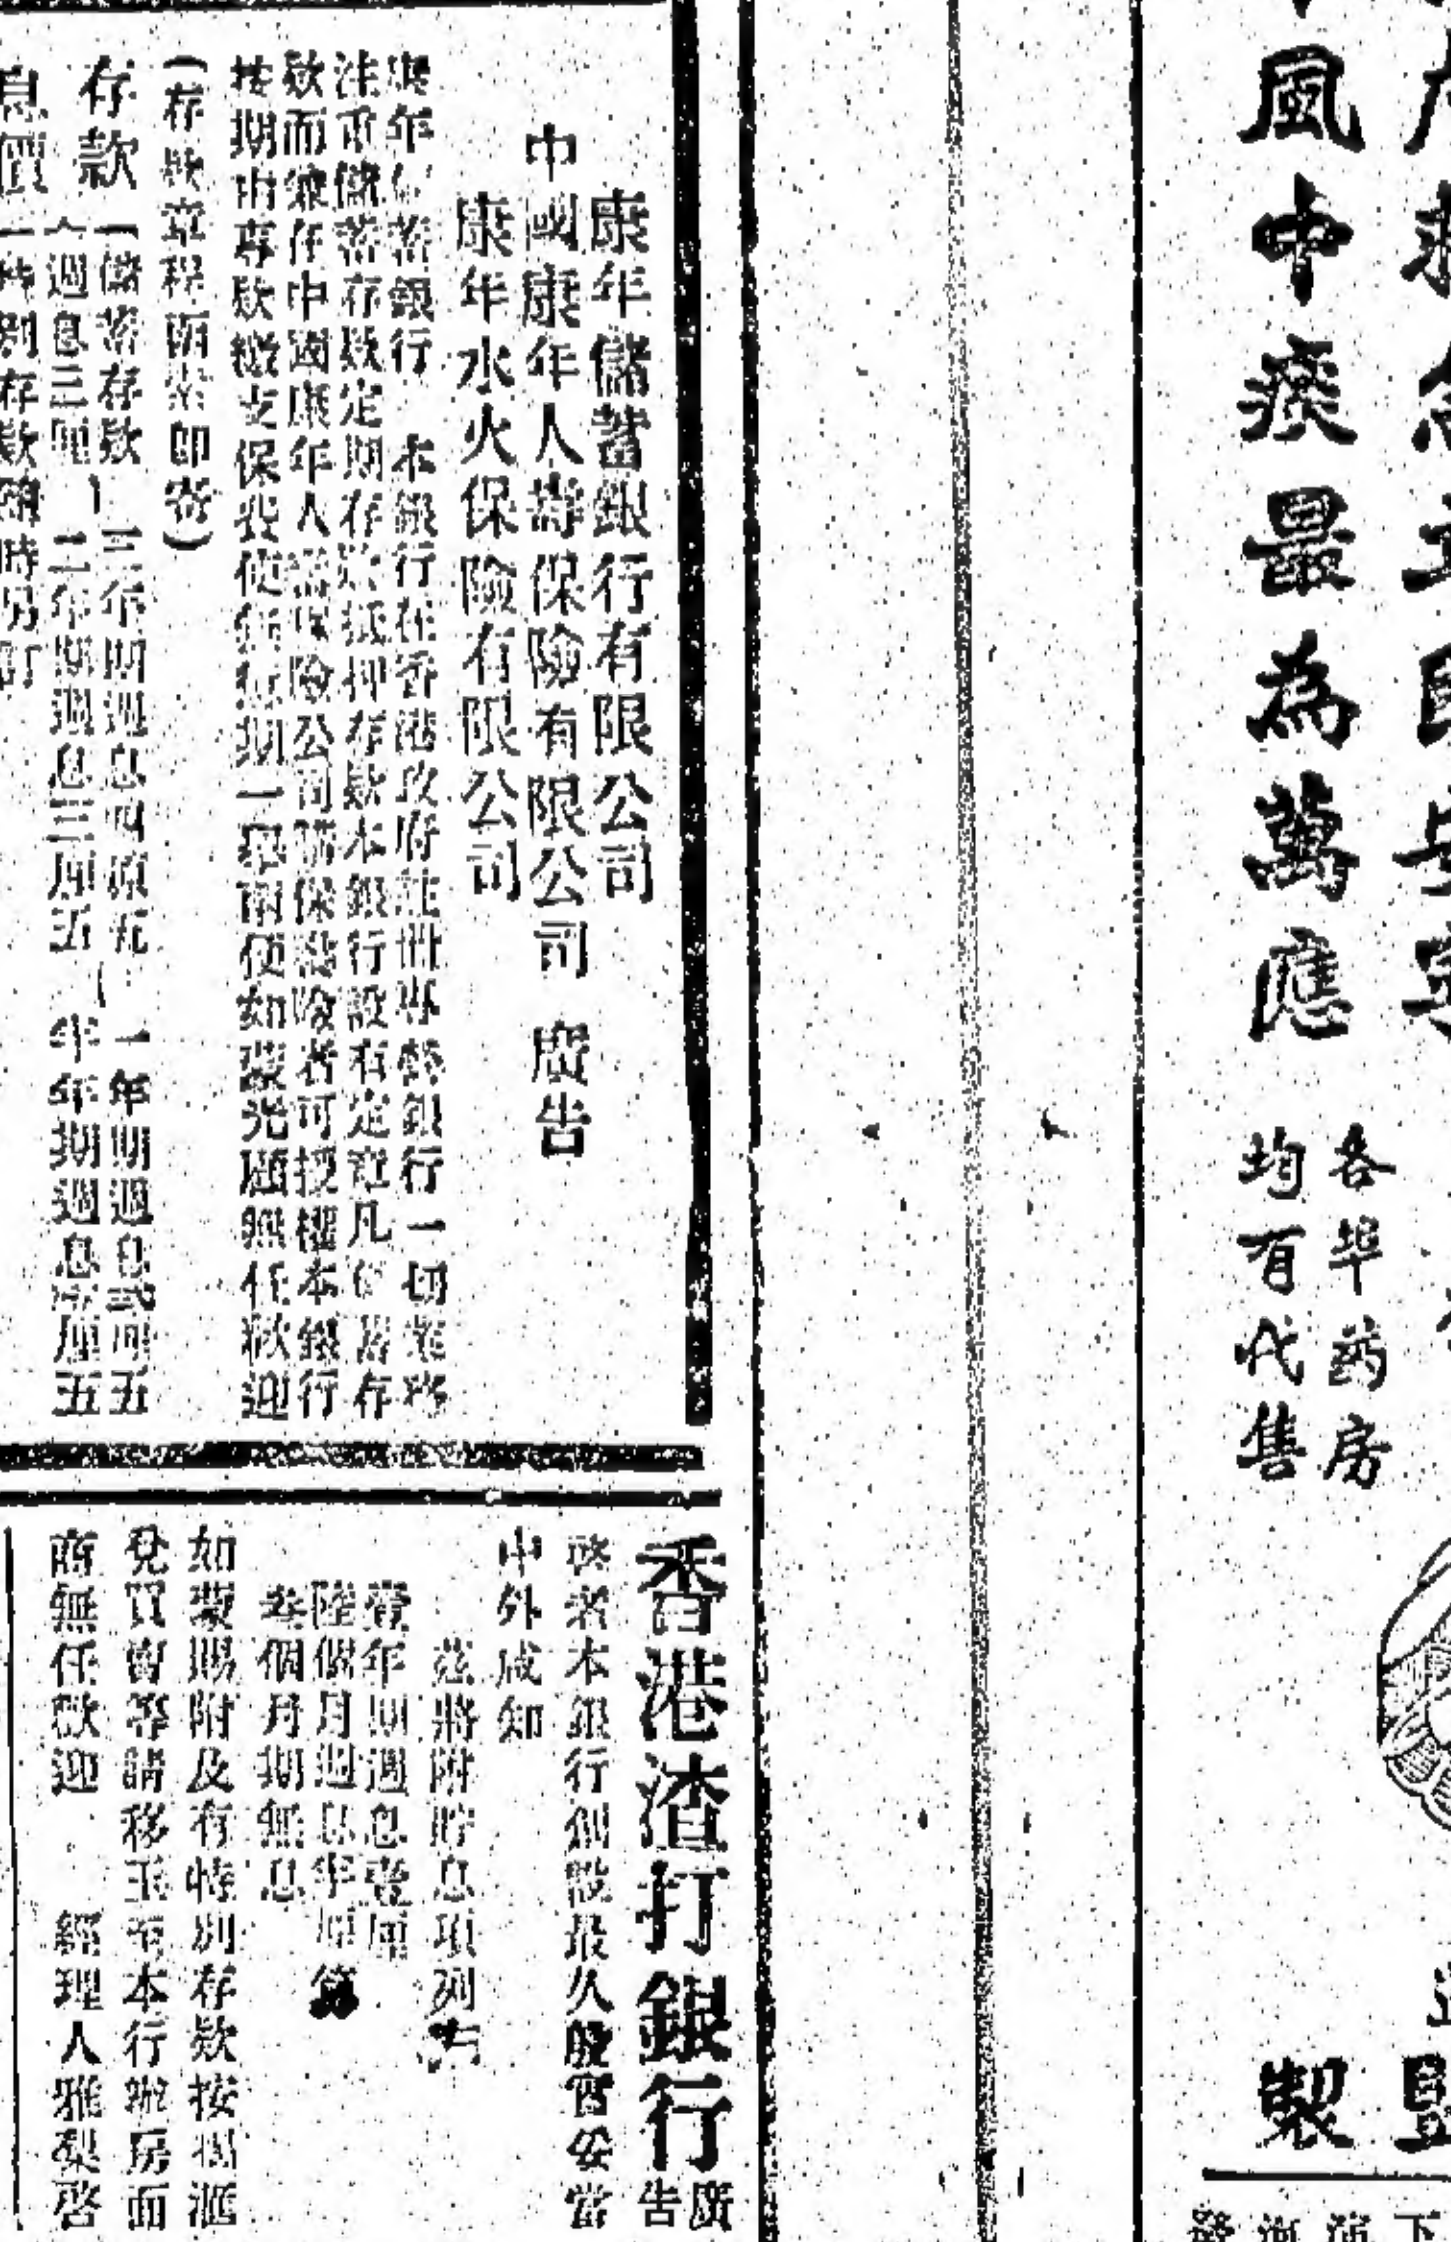 風中痰最為萬應
各埠药房
均有代售
製
康年儲蓄銀行有限公司
中國康年人壽保險有限公司 廣告
康年水火保險有限公司
康年儲蓄銀行 本銀行在香港政府註冊專營銀行一切業務
注重儲蓄存款定期存款抵押存款本銀行設有定章凡儲蓄存
款而兼在中國康年人壽保險公司購保壽險者可授權本銀行
按期由專款繳支保費便無短期一舉兩便如蒙光顧無任歡迎
(存款章程函索即寄)
存款
儲蓄存款 三年期週息四厘五 一年期週息式厘五
週息三厘 二年期週息三厘五 半年期週息壹厘五
息價
特別存款隨時另訂
香港渣打銀行廣告
啟者本銀行創設最久殷實妥當
中外咸知
茲將附貯息項列右
壹年期週息壹厘
陸個月週息半厘算
叁個月期無息
如蒙賜附及有特別存款按揭滙
兌買賣等請移玉至本行辦房面
商無任歡迎 經理人雅梨啓